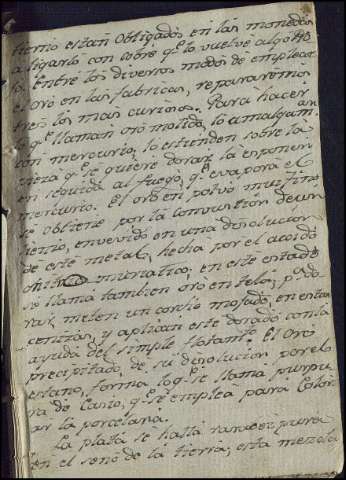 tierno estan obligados en las monedas
a ligarlo con cobre qe. lo vuelve algo
so. entre los diversos modos de emplear
el oro en las fabricas, repararemos
tres los mas curiosos. Para hacer
lo qe. llaman oro molido, lo amalgaman
con mercurio, lo estienden sobre la
pieza qe. se quiere dorar, la esponen
en seguida al fuego, qe. evapora el
mercurio. El oro en polvo muy fino
se obtiene por la combustion de un
lienzo, envevido en una disolucion
de este metal, hecha por el acido
muriatico; en este estado
se llama tambien oro entelo; pa. do
rar, meten un corcho mojado, en estas
cenizas, y aplican este dorado con la
ayuda del simple flotante. El Oro
precipitado, de su disolucion por el
estano, forma lo qe. se llama purpu
ra de Casio, qe. se emplea para Color
ar la porcelana.
La plata se halla rara vez pura
en el seno de la tierra; esta mezcla